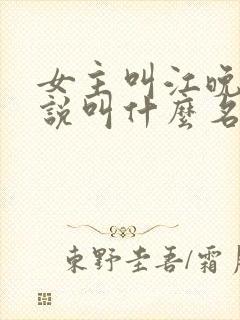 女主叫江晚
說叫什麼名
東野圭吾/霜月